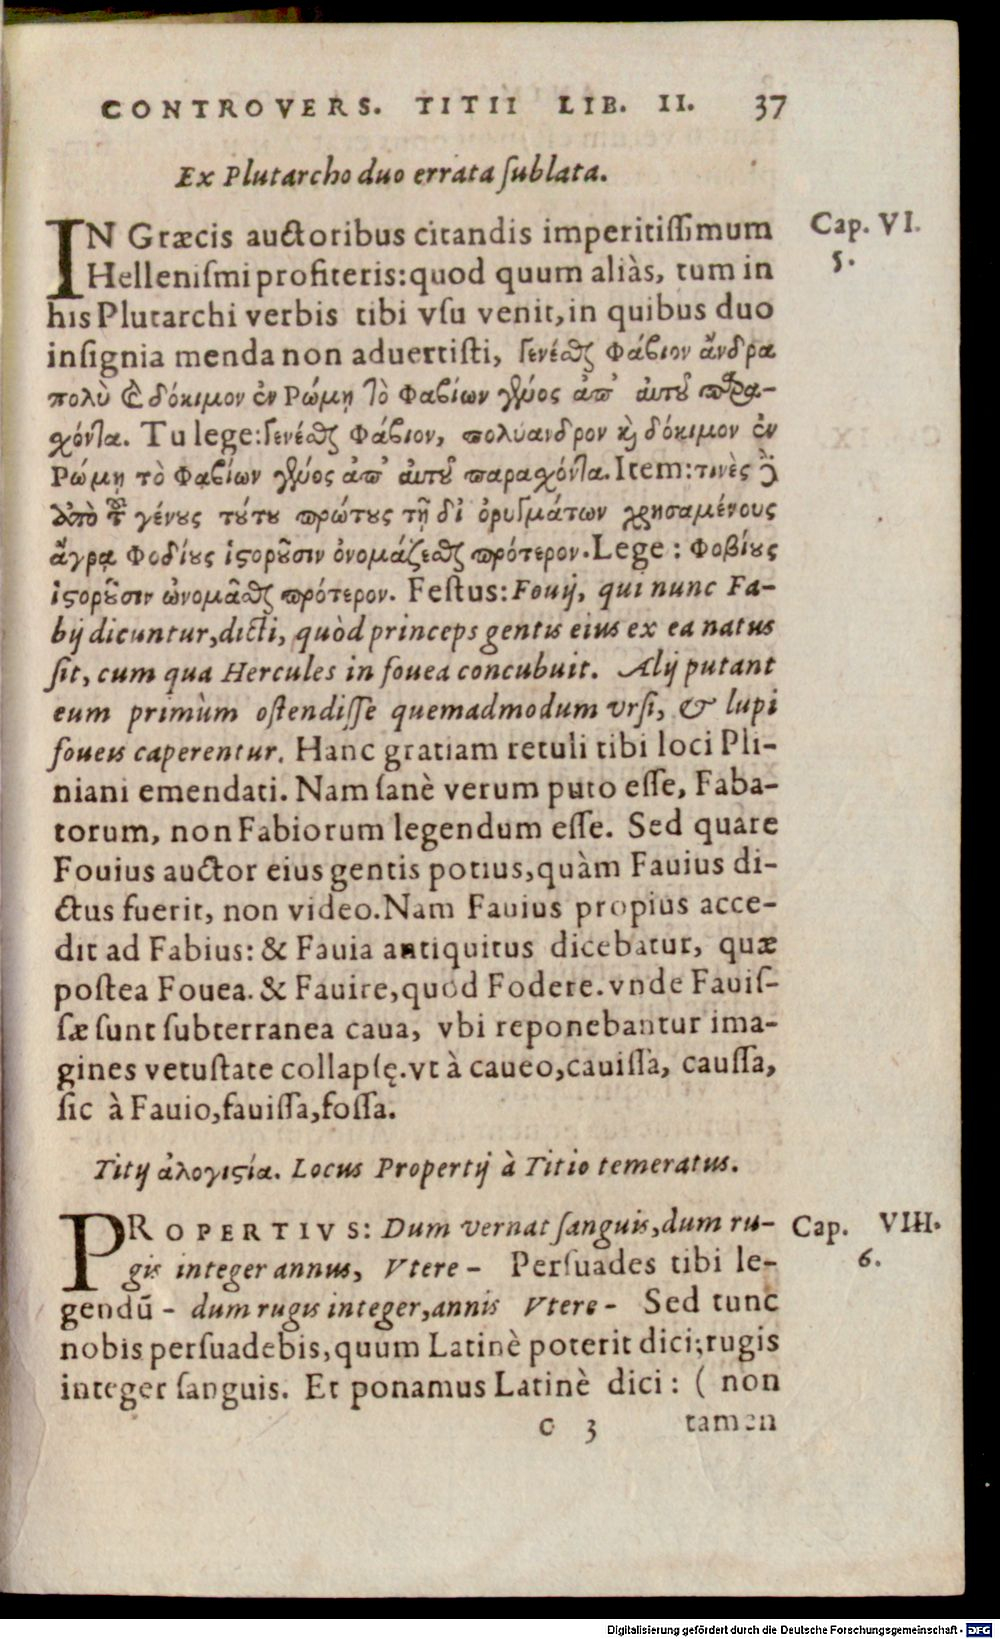 CONTROVERS. TITII LIB. II. 37
Ex Plutarcho duo errata ſublata.
IN Græcis auctoribus citandis imperitiſſimum
Cap. VI.
Helleniſmi profiteris: quod quum aliàs, tum in
5.
his Plutarchi verbis tibi vſu venit, in quibus duo
inſignia menda non aduertiſti, γενέσθαι Φάβιον ἄνδρα
πολὺ καὶ δόκιμον ἐν Ρώμῃ τὸ Φαβίων γένος ἀπ' αὐτοῦ παρα-
χόντα. Tu lege: γενέσθαι Φάβιον, πολύανδρον καὶ δόκιμον ἐν
Ρώμῃ τὸ Φαβίων γένος ἀπ' αὐτοῦ παραχόντα. Item: τινὲς δὲ
ἀπὸ τοῦ γένους τούτου πρώτους τῇ δι' ὀρυγμάτων χρησαμένους
ἄγρᾳ Φοδίους ἱστοροῦσιν ὀνομάζεσθαι πρότερον. Lege: Φοβίους
ἱστοροῦσιν ὠνομᾶσθαι πρότερον. Feſtus: Fouij, qui nunc Fa-
bij dicuntur, dicti, quòd princeps gentis eius ex ea natus
ſit, cum qua Hercules in fouea concubuit. Alij putant
eum primùm oſtendiſſe quemadmodum vrſi, & lupi
foueis caperentur. Hanc gratiam retuli tibi loci Pli-
niani emendati. Nam ſanè verum puto eſſe, Faba-
torum, non Fabiorum legendum eſſe. Sed quare
Fouius auctor eius gentis potius, quàm Fauius di-
ctus fuerit, non video. Nam Fauius propius acce-
dit ad Fabius: & Fauia antiquitus dicebatur, quæ
poſtea Fouea. & Fauire, quod Fodere. vnde Fauiſ-
ſæ ſunt ſubterranea caua, vbi reponebantur ima-
gines vetuſtate collapſę. vt à caueo, cauiſſa, cauſſa,
ſic à Fauio, fauiſſa, foſſa.
Titij ἀλογιστία. Locus Propertij à Titio temeratus.
PROPERTIVS: Dum vernat ſanguis, dum ru-
Cap. VIII.
gis integer annus, Vtere - Perſuades tibi le-
6.
gendũ - dum rugis integer, annis Vtere - Sed tunc
nobis perſuadebis, quum Latinè poterit dici; rugis
integer ſanguis. Et ponamus Latinè dici: ( non
c 3 tamen
Digitalisierung gefördert durch die Deutsche Forschungsgemeinschaft - DFG